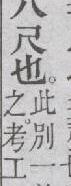 八尺也。
此別一
之。考工